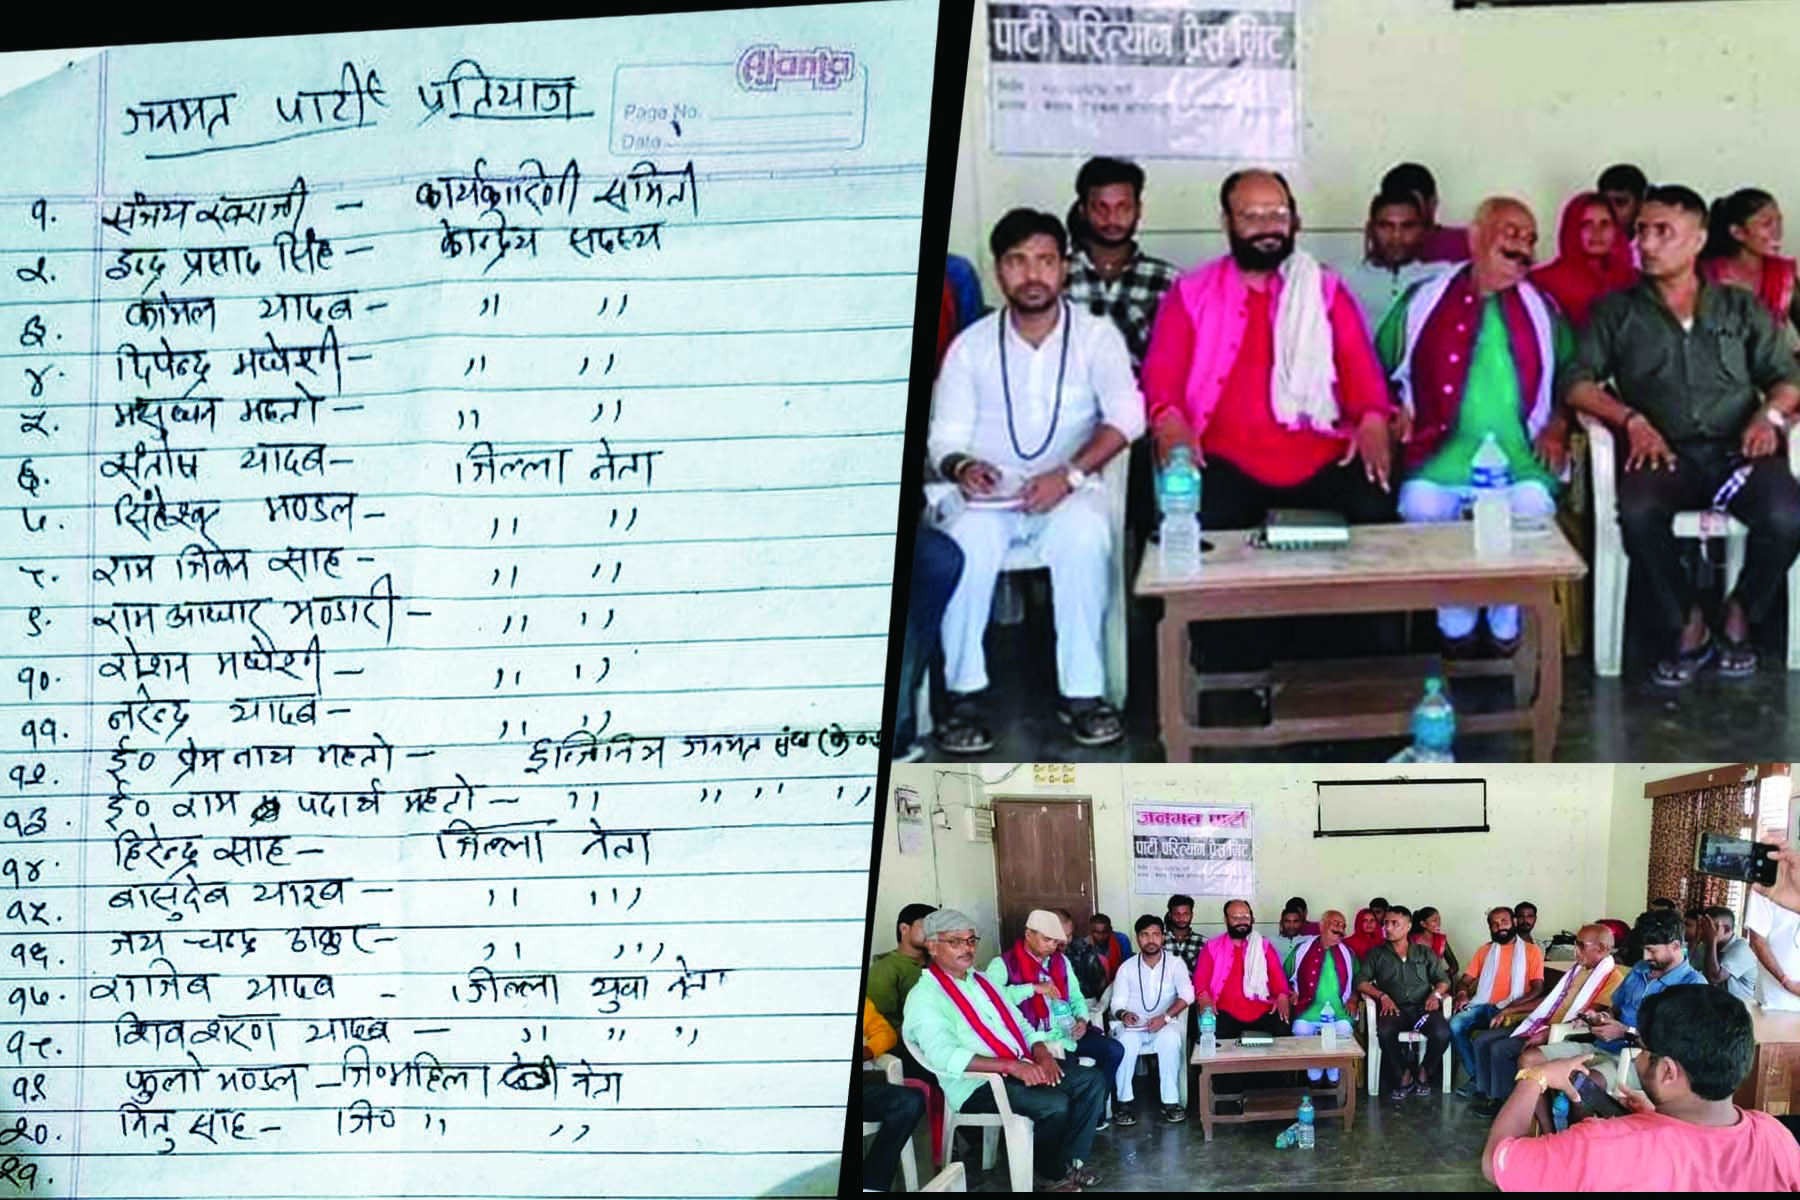 जनमत पार्टी प्रतियाज
Ajanta
Page No.
Date
१. संजय स्वराजी - कार्यकारिणी समिती
२. इन्द्र प्रसाद सिंह - केन्द्रिय सदस्य
३. कोमल यादब - ,, ,,
४. दिपेन्द्र मधेशी - ,, ,,
५. मधुसुधन महतो - ,, ,,
६. संतोष यादब - जिल्ला नेता
७. सिंहेश्वर मण्डल - ,, ,,
८. राम जिवन साह - ,, ,,
९. राम आधार भण्डारी - ,, ,,
१०. रोशन मधेशी - ,, ,,
११. नरेन्द्र यादब - ,, ,,
१२. ई० प्रेम नाथ महतो - इन्जिनियर जनमत संघ
१३. ई० राम पदार्थ महतो - ,, ,, ,, ,,
१४. हिरेन्द्र साह - जिल्ला नेता
१५. बासुदेब यादब - ,, ,,
१६. जय चन्द्र ठाकुर - ,, ,,
१७. राजिब यादब - जिल्ला युवा नेता
१८. शिवशरण यादब - ,, ,, ,,
१९. फुलो मण्डल - जि० महिला नेता
२०. मितु साह - जि० ,, ,,
२१.
पार्टी परित्याग प्रेस मिट
जनमत पार्टी
पार्टी परित्याग प्रेस मिट